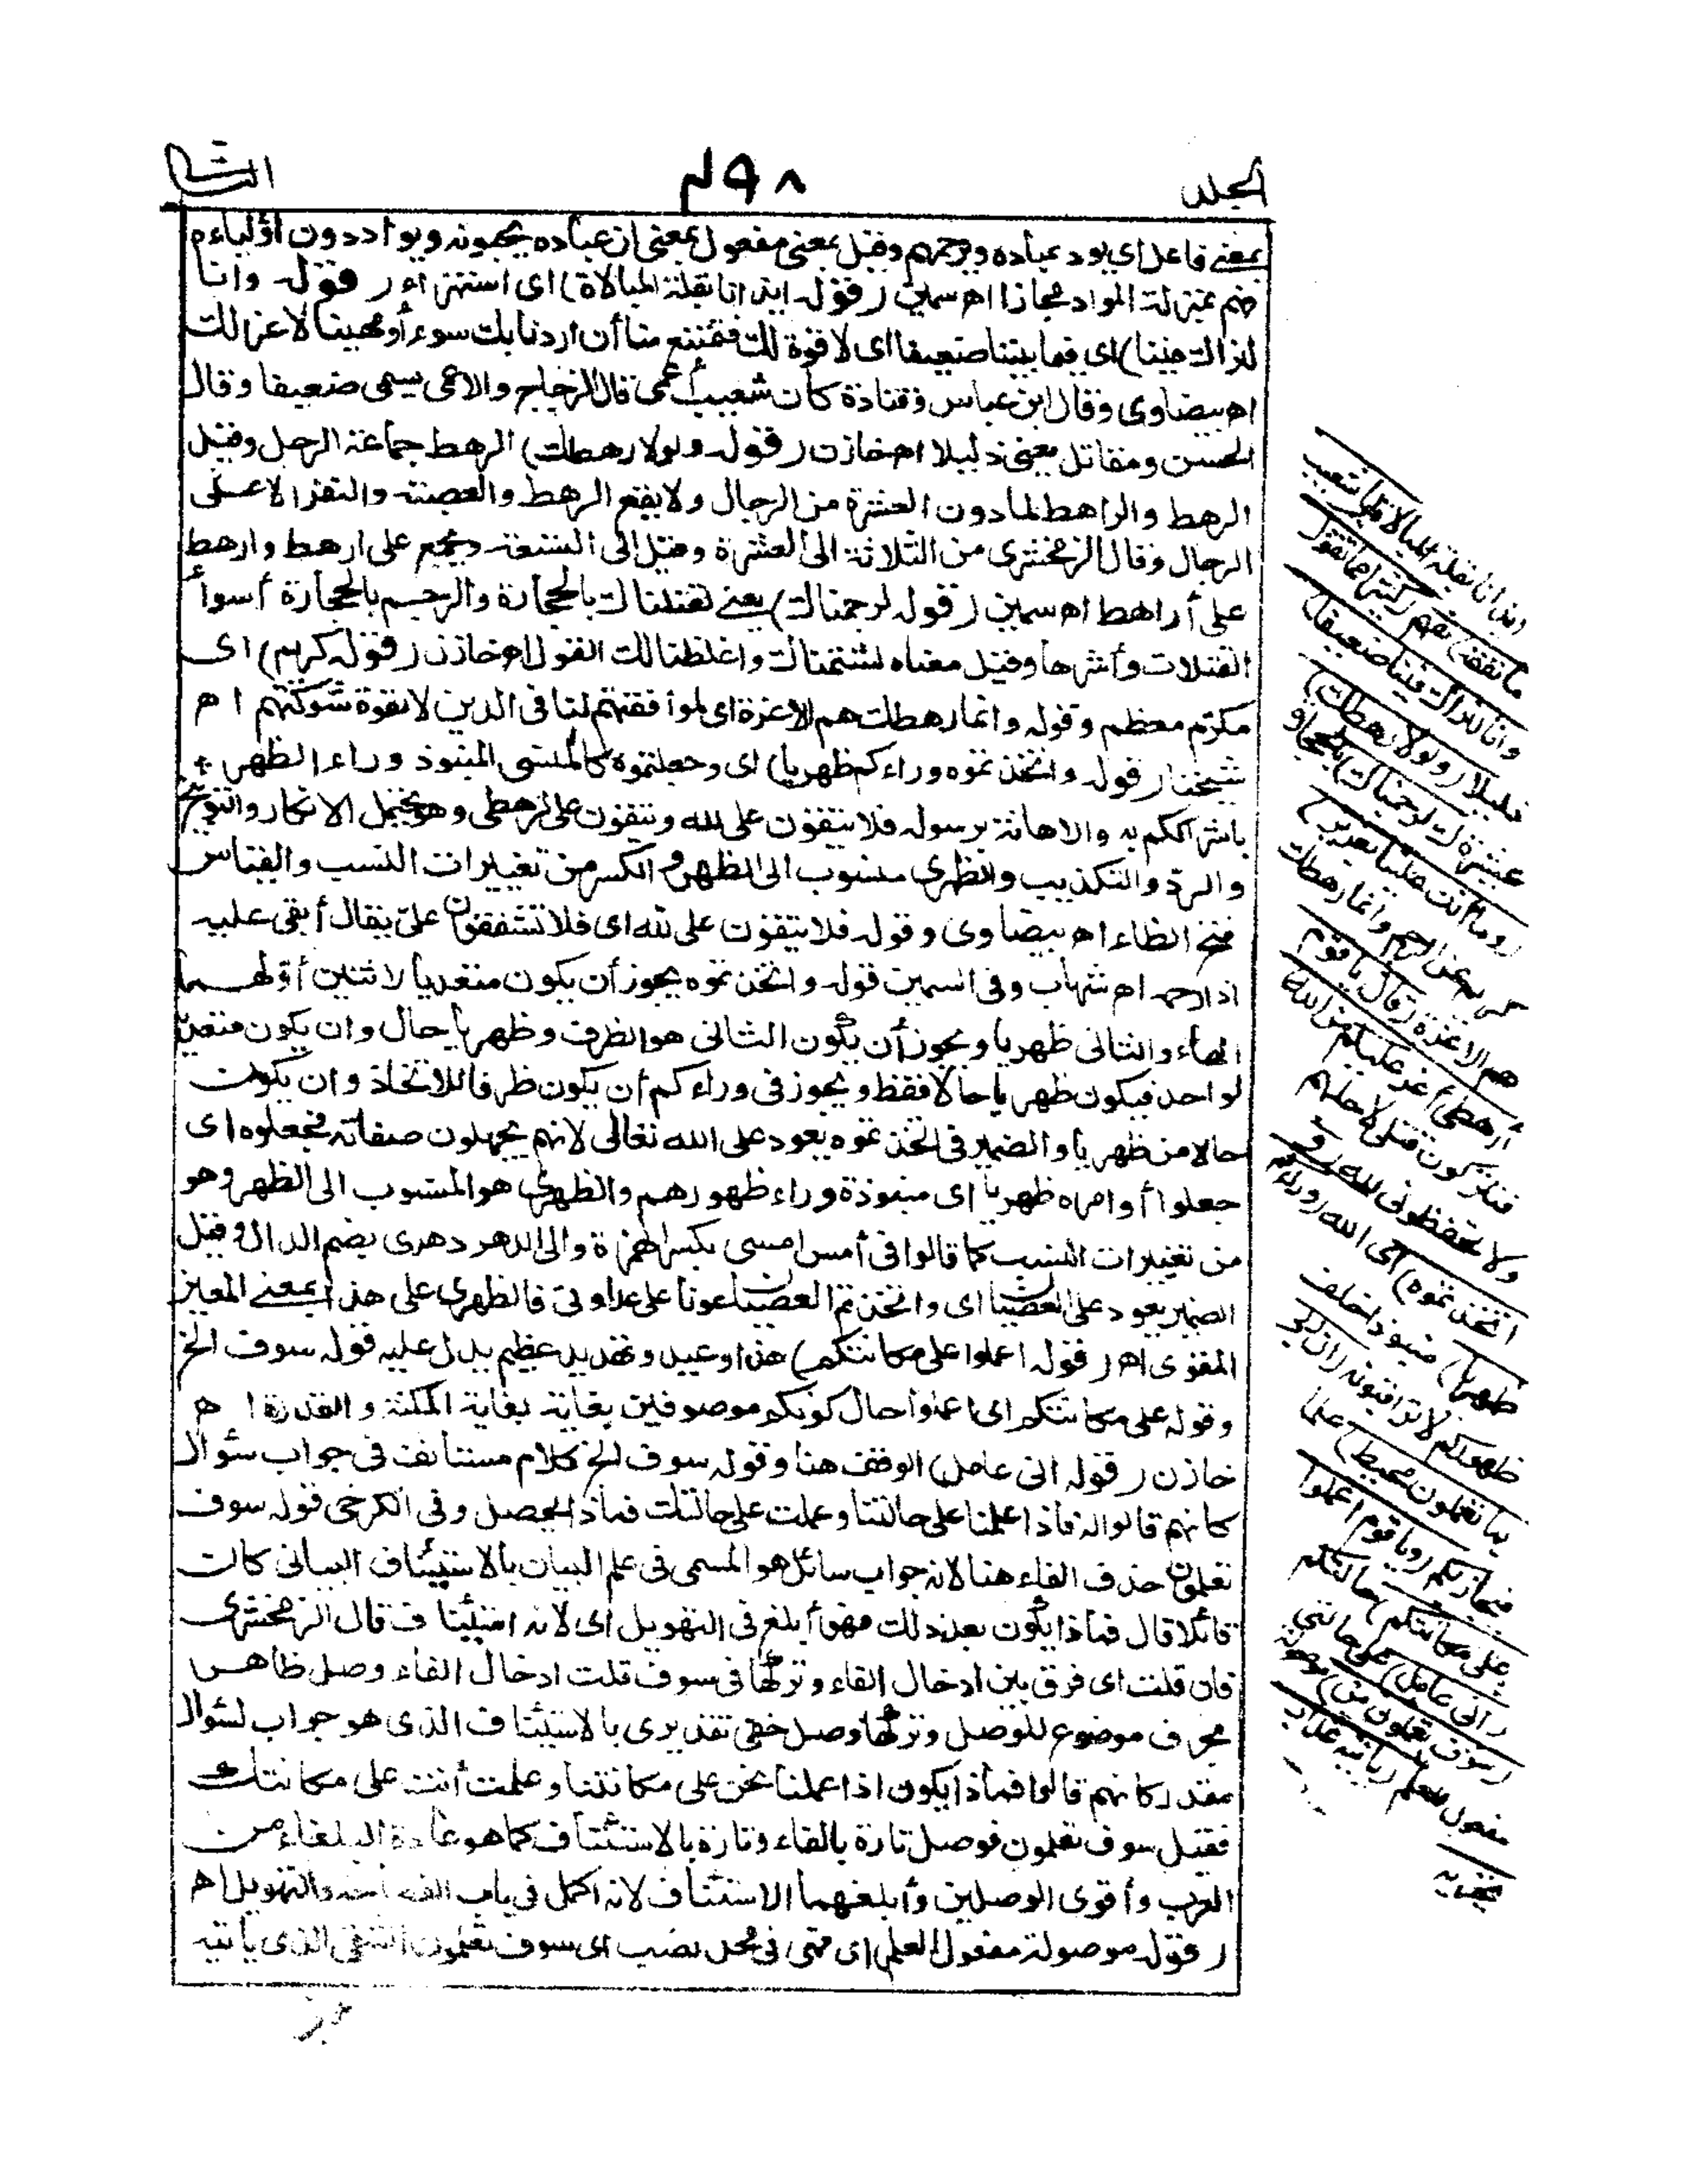 الجلد
٤٩٨
الثانی
بمعنى فاعل ای یود عباده ویرحمهم وقیل بمعنى مفعول بمعنى ان عباده یحبونه ویوادون اولیاءه
فهم بمنزلة المواد مجازا اه سمین (قوله ایذانا بقلة المبالاة) ای استهزاء (قوله وانا
لنراك فینا) ای فیما بیننا ضعیفا ای لا قوة لك فتمتنع منا أن اردنا بك سوء أو مهینا لا عز لك
اه بیضاوی وقال ابن عباس وقتادة كان شعیب أعمى قال الزجاج والاعمى یسمى ضعیفا وقال
الحسن ومقاتل یعنی ذلیلا اه خازن (قوله ولولا رهطك) الرهط جماعة الرجل وقیل
الرهط والراهط لما دون العشرة من الرجال ولا یقع الرهط والعصبة والنفر الا على
الرجال وقال الزمخشری من الثلاثة الى العشرة وقیل الى التسعة ویجمع على ارهط وارهط
على أراهط اه سمین (قوله لرجمناك) یعنی لقتلناك بالحجارة والرجم بالحجارة أسوأ
القتلات وأشرها وقیل معناه لشتمناك واغلظنا لك القول اه خازن (قوله كریم) ای
مكرم معظم وقوله وانما رهطك هم الاعزة ای لموافقتهم لنا فی الدین لا لقوة شوكتهم اه
شیخنا (قوله واتخذتموه وراءكم ظهریا) ای وجعلتموه كالمنسی المنبوذ وراء الظهر
باشراككم به والاهانة برسوله فلا تتقون على لله وتتقون على لرهطی وهو یحتمل الانكار والتوبیخ
والرد والتكذیب والظهری منسوب الى الظهر والكسر من تغییرات النسب والقیاس
فتح الظاء اه بیضاوی وقوله فلا تتقون على لله ای فلا تشفقون علیّ یقال أبقى علیه
اذا رحمه اه شهاب وفی السمین قوله واتخذتموه یجوز أن یكون متعدیا لاثنین أولهما
الهاء والثانی ظهریا ویجوز أن یكون الثانی هو الظرف وظهریا حال وان یكون متعدیا
لواحد فیكون ظهریا حالا فقط ویجوز فی وراءكم أن یكون ظرفا للاتخاذ وان یكون
حالا من ظهریا والضمیر فی اتخذتموه یعود على الله تعالى لانهم یجهلون صفاته فجعلوه ای
جعلوا أوامره ظهریا ای منبوذة وراء ظهورهم والظهری هو المنسوب الى الظهر وهو
من تغییرات النسب كما قالوا فی أمس امسی بكسر الهمزة والى الدهر دهری بضم الدال وقیل
الضمیر یعود على العصیان ای واتخذتم العصیان عونا على عداوتی فالظهری على هذا بمعنى المعین
المقوی اه (قوله اعملوا على مكانتكم) هذا وعید وتهدید عظیم یدل علیه قوله سوف الخ
وقوله على مكانتكم ای اعملوا حال كونكم موصوفین بغایة المكنة والقدرة اه
خازن (قوله انی عامل) الوقف هنا وقوله سوف الخ كلام مستأنف فی جواب سؤال
كانهم قالوا له فاذا عملنا على حالتنا وعملت على حالتك فماذا یحصل وفی الكرخی قوله سوف
تعلمون حذف الفاء هنا لانه جواب سائل هو المسمى فی علم البیان بالاستئناف البیانی كان
قائلا قال فماذا یكون بعد ذلك فهو أبلغ فی التهویل ای لانه استئناف قال الزمخشری
فان قلت ای فرق بین ادخال الفاء وتركها فی سوف قلت ادخال الفاء وصل ظاهر
بحرف موضوع للوصل وتركها وصل خفی تقدیری بالاستئناف الذی هو جواب لسؤال
مقدر كانهم قالوا فماذا یكون اذا عملنا نحن على مكانتنا وعملت أنت على مكانتك
فقیل سوف تعلمون فوصل تارة بالفاء وتارة بالاستئناف كما هو عادة البلغاء من
العرب وأقوى الوصلین وأبلغهما الاستئناف لانه اكمل فی باب الفصاحة والتهویل اه
(قوله موصولة مفعول العلم) ای فهی فی محل نصب ای سوف تعلمون الشقی الذی یأتیه
ایذانا بقلة المبالاة (قالوا یا شعیب
ما نفقه) نفهم (كثیرا مما تقول
وانا لنراك فینا ضعیفا)
ذلیلا (ولولا رهطك)
عشیرتك (لرجمناك) بالحجارة
(وما أنت علینا بعزیز)
كریم عن الرجم وانما رهطك
هم الاعزة (قال یا قوم
أرهطی أعز علیكم من الله)
فتتركون قتلی لاجلهم
ولا تحفظونی لله (و
اتخذتموه) ای الله (وراءكم
ظهریا) منبوذا خلف
ظهوركم لا تراقبونه (ان ربی
بما تعملون محیط) علما
فیجازیكم (ویا قوم اعملوا
على مكانتكم) حالتكم
(انی عامل) على حالتی
(سوف تعلمون من) موصولة
مفعول العلم (یأتیه عذاب
یخزیه